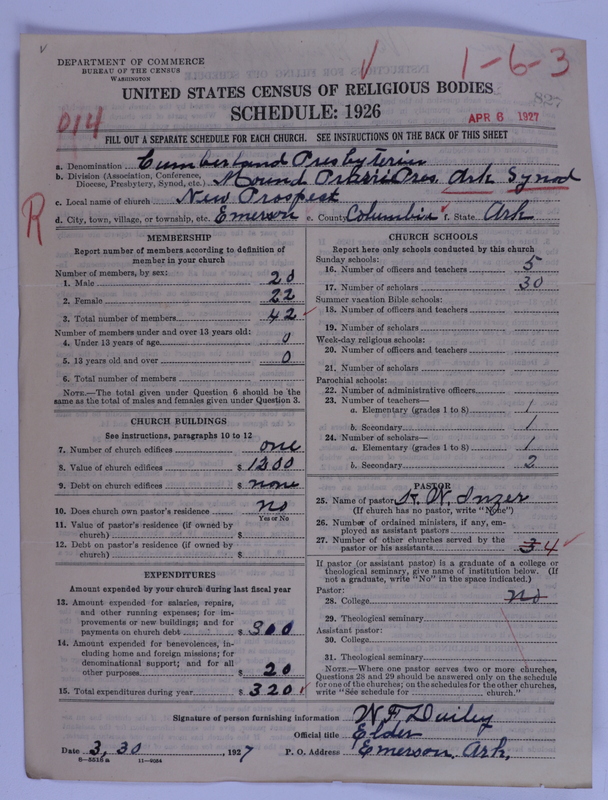 DEPARTMENT OF COMMERCE
BUREAU OF THE CENSUS
WASHINGTON
1-6-3
UNITED STATES CENSUS OF RELIGIOUS BODIES
SCHEDULE: 1926
827
014
APR 6 1927
FILL OUT A SEPARATE SCHEDULE FOR EACH CHURCH. SEE INSTRUCTIONS ON THE BACK OF THIS SHEET
a. Denomination Cumberland Presbyterin
b. Division (Association, Conference, Diocese, Presbytery, Synod, etc.) Mound Prarri Pres. Ark Synod
c. Local name of church New Prospect
R
d. City, town, village, or township, etc. Emerson e. County Columbia f. State Ark
MEMBERSHIP
Report number of members according to definition of
member in your church
Number of members, by sex:
1. Male 20
2. Female 22
3. Total number of members 42
Number of members under and over 13 years old:
4. Under 13 years of age 0
5. 13 years old and over 0
6. Total number of members
NOTE.—The total given under Question 6 should be the
same as the total of males and females given under Question 3.
CHURCH BUILDINGS
See instructions, paragraphs 10 to 12
7. Number of church edifices one
8. Value of church edifices $ 1200
9. Debt on church edifices $ none
10. Does church own pastor's residence no
Yes or No
11. Value of pastor's residence (if owned by
church) $
12. Debt on pastor's residence (if owned by
church) $
EXPENDITURES
Amount expended by your church during last fiscal year
13. Amount expended for salaries, repairs,
and other running expenses; for im-
provements or new buildings; and for
payments on church debt $ 300
14. Amount expended for benevolences, in-
cluding home and foreign missions; for
denominational support; and for all
other purposes $ 20
15. Total expenditures during year $ 320
CHURCH SCHOOLS
Report here only schools conducted by this church
Sunday schools:
16. Number of officers and teachers 5
17. Number of scholars 30
Summer vacation Bible schools:
18. Number of officers and teachers
19. Number of scholars
Week-day religious schools:
20. Number of officers and teachers
21. Number of scholars
Parochial schools:
22. Number of administrative officers
23. Number of teachers—
a. Elementary (grades 1 to 8) 1
b. Secondary 1
24. Number of scholars—
a. Elementary (grades 1 to 8) 1
b. Secondary 2
PASTOR
25. Name of pastor W. Inzer
(If church has no pastor, write "None")
26. Number of ordained ministers, if any, em-
ployed as assistant pastors
27. Number of other churches served by the
pastor or his assistants 3 4
If pastor (or assistant pastor) is a graduate of a college or
theological seminary, give name of institution below. (If
not a graduate, write "No" in the space indicated.)
Pastor:
28. College no
29. Theological seminary
Assistant pastor:
30. College
31. Theological seminary
NOTE.—Where one pastor serves two or more churches,
Questions 28 and 29 should be answered only on the schedule
for one of the churches; on the schedules for the other churches,
write "See schedule for church."
Signature of person furnishing information W. F. Dailey
Official title Elder
Date 3, 30, 1927 P. O. Address Emerson, Ark,
8—5516 a 11—9034